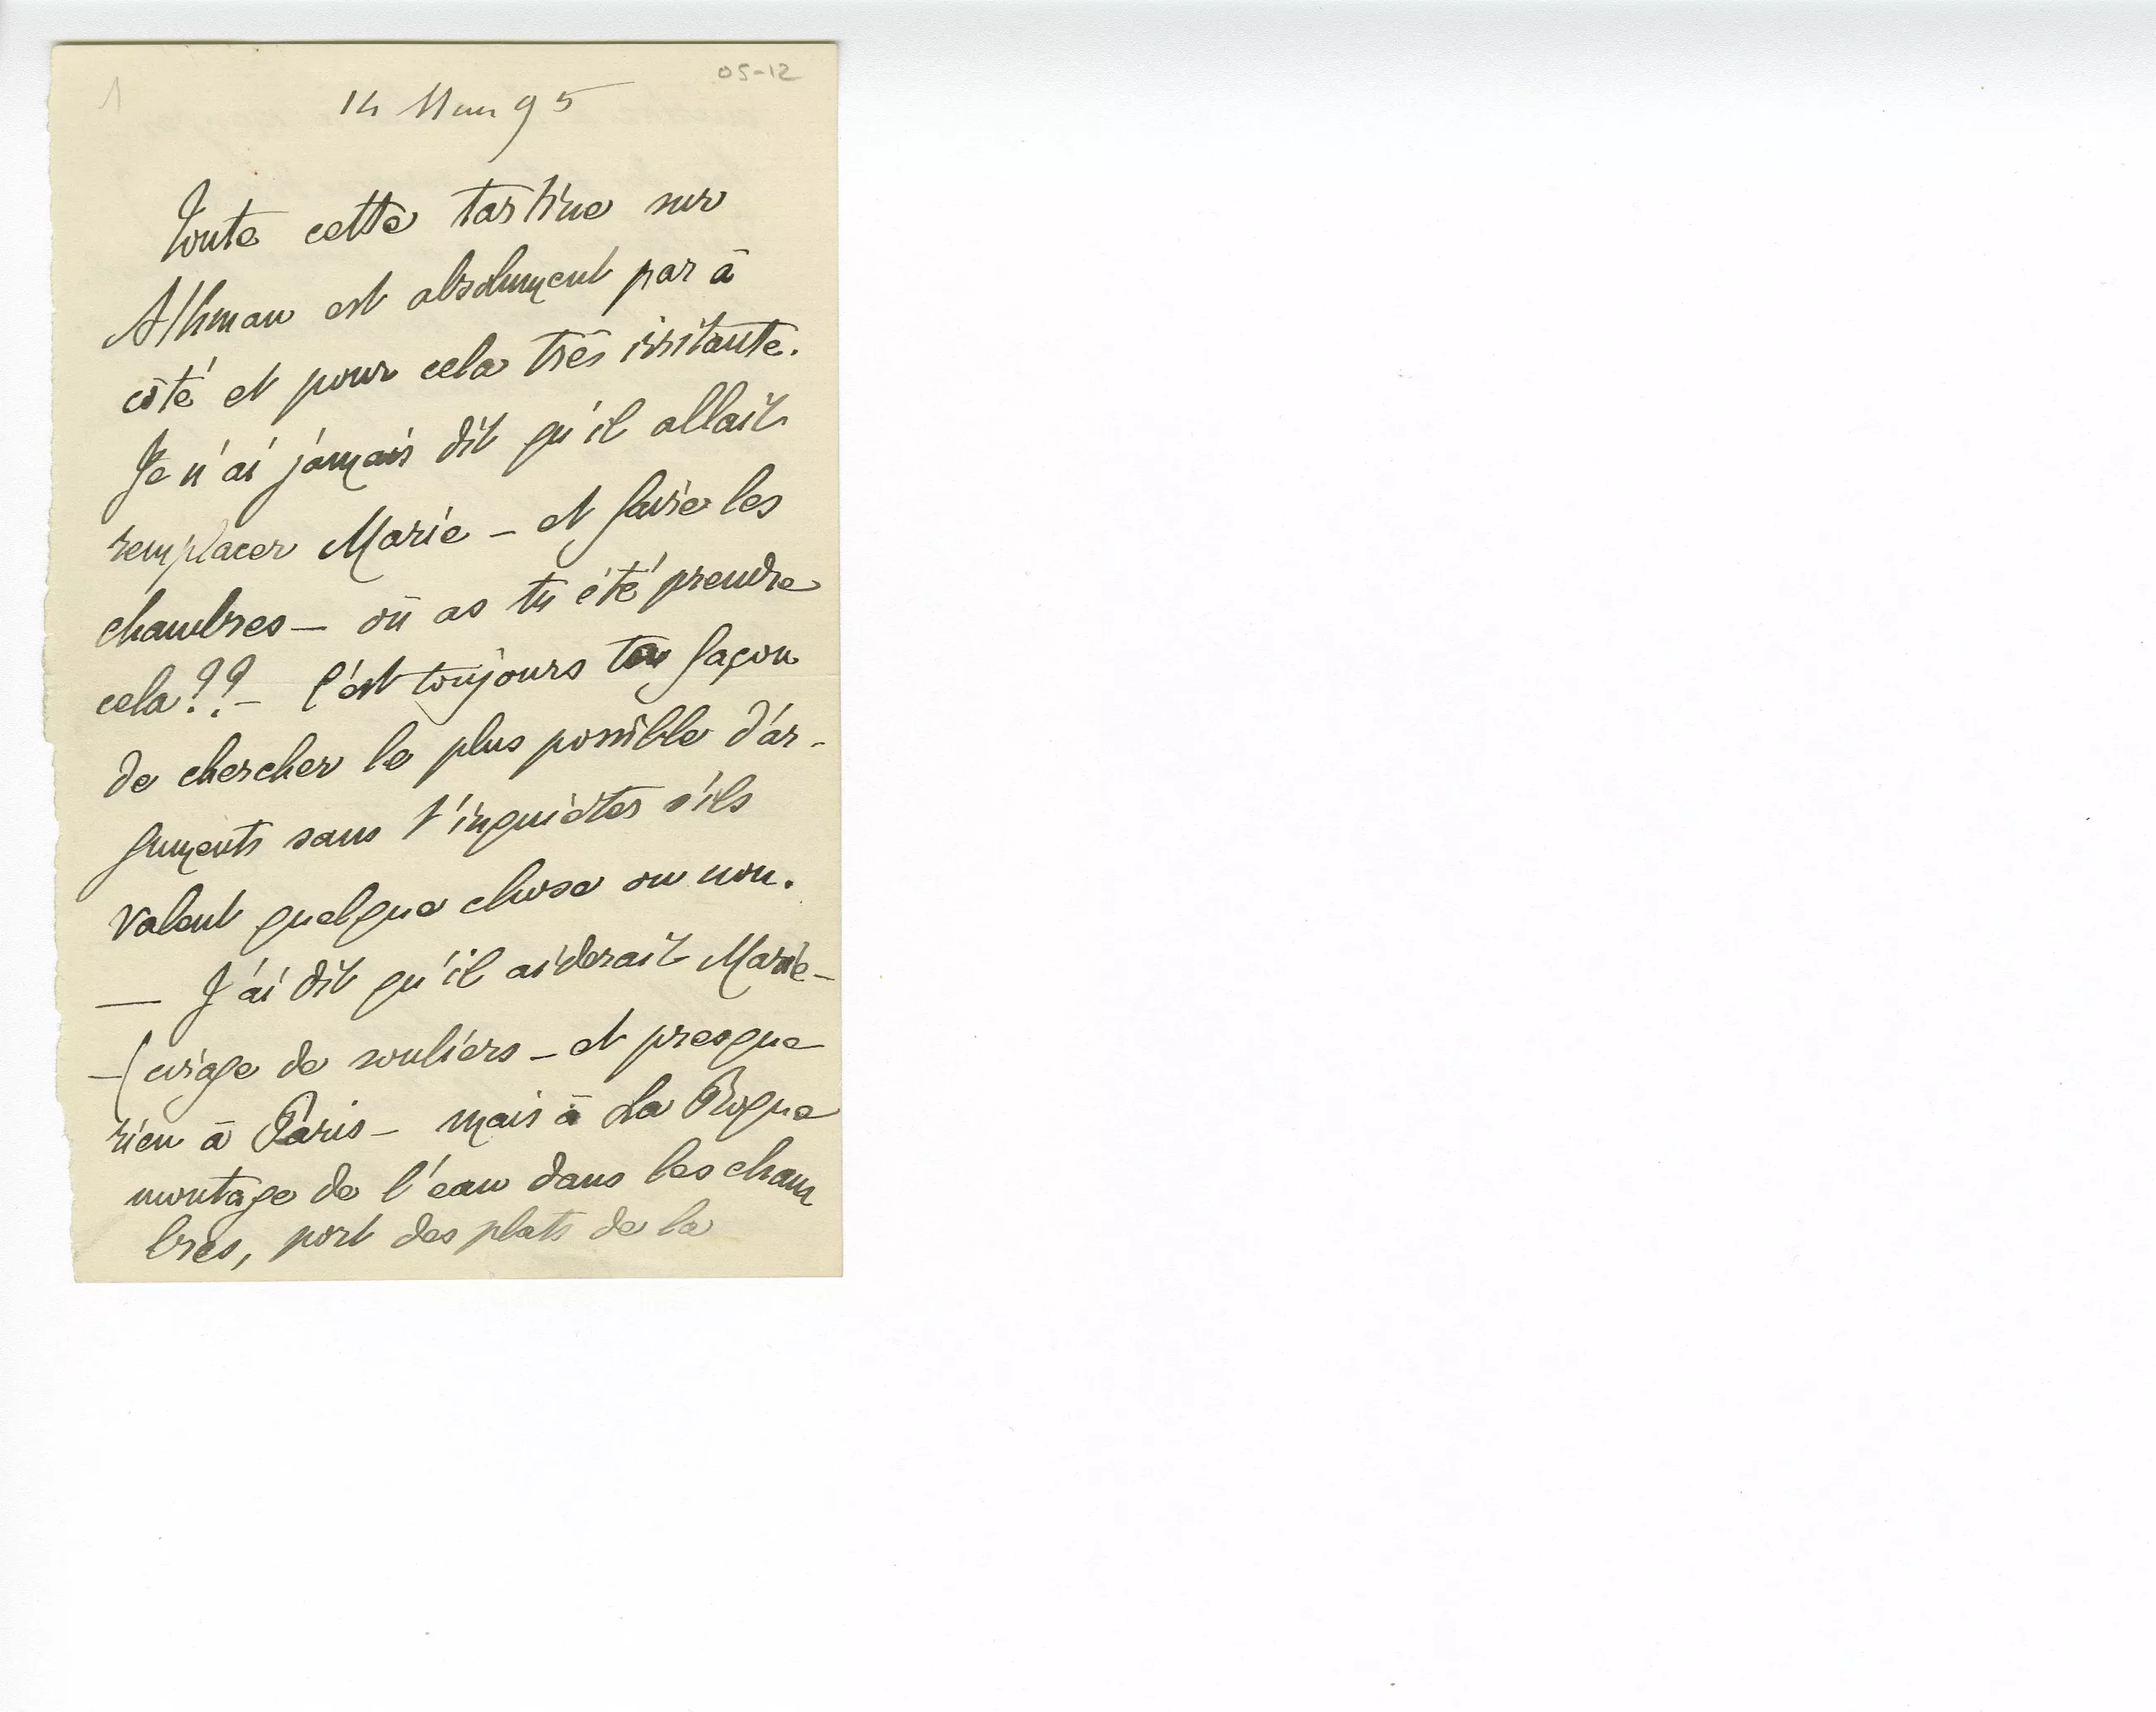 1
05-12
14 Mars 95
Toute cette tartine sur
Athman est absolument par à
côté et pour cela très irritante.
Je n'ai jamais dit qu'il allait
remplacer Marie – et faire les
chambres – où as tu été prendre
cela?? – C'est toujours ta façon
de chercher le plus possible d'ar-
guments sans t'inquièter s'ils
valent quelque chose ou non.
— J'ai dit qu'il aiderait Marie –
– (cirage de souliers – et presque
rien à Paris – mais à La Roque
montage de l'eau dans les cham
bres, port des plats de la